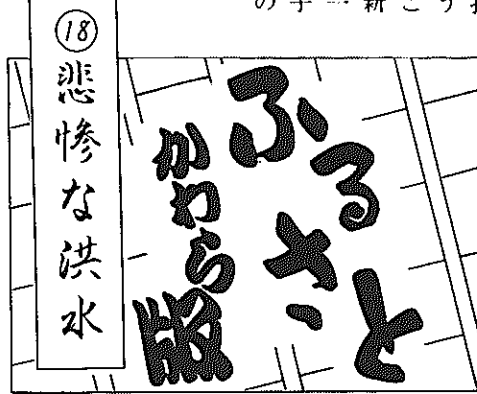 の字…新こう
ふるさと
かわら版
⑱悲惨な洪水